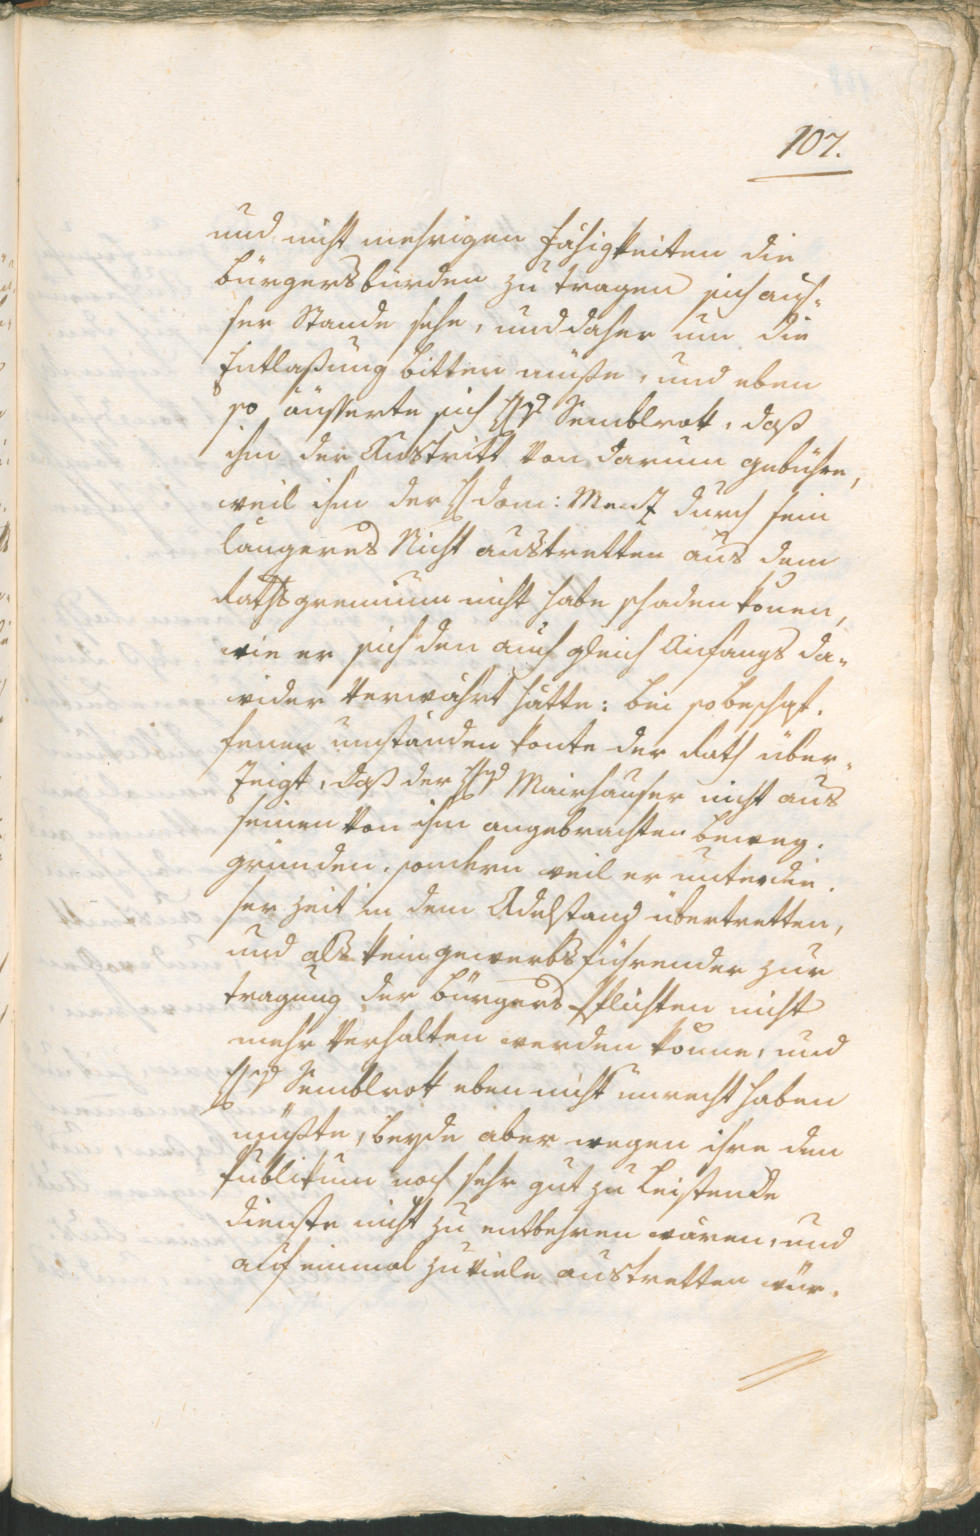 107.
und nicht mehrigen Fähigkeiten die
Bürgersbürden zu tragen sich aus-
ser Stande sehe, und daher um die
Entlaßung bitten müße, und eben
so äusserte sich H Semblrok, daß
ihm der Austritt von darum gebühre,
weil ihm der H dom: Menz durch sein
längeres Nicht austretten aus dem
Rathsgremium nicht habe schaden könen,
wie er sich den auch gleich Anfangs da-
wider verwahrt hätte: bei so beschaf-
fenen umständen konte der Rath über-
zeigt, daß der H Mairhauser nicht aus
seinen von ihm angebrachten beweg-
gründen, sondern weil er unter die-
ser zeit in dem Adelstand übertretten,
und als kein gewerbsführender zur
tragung der Bürgerspflichten nicht
mehr verhalten werden könne, und
H Semblrok eben nicht unrecht haben
müßte, beyde aber wegen ihre dem
Publikum noch sehr gut zu leistende
dienste nicht zu entbehren wären, und
auf einmal zu viele austretten wür-